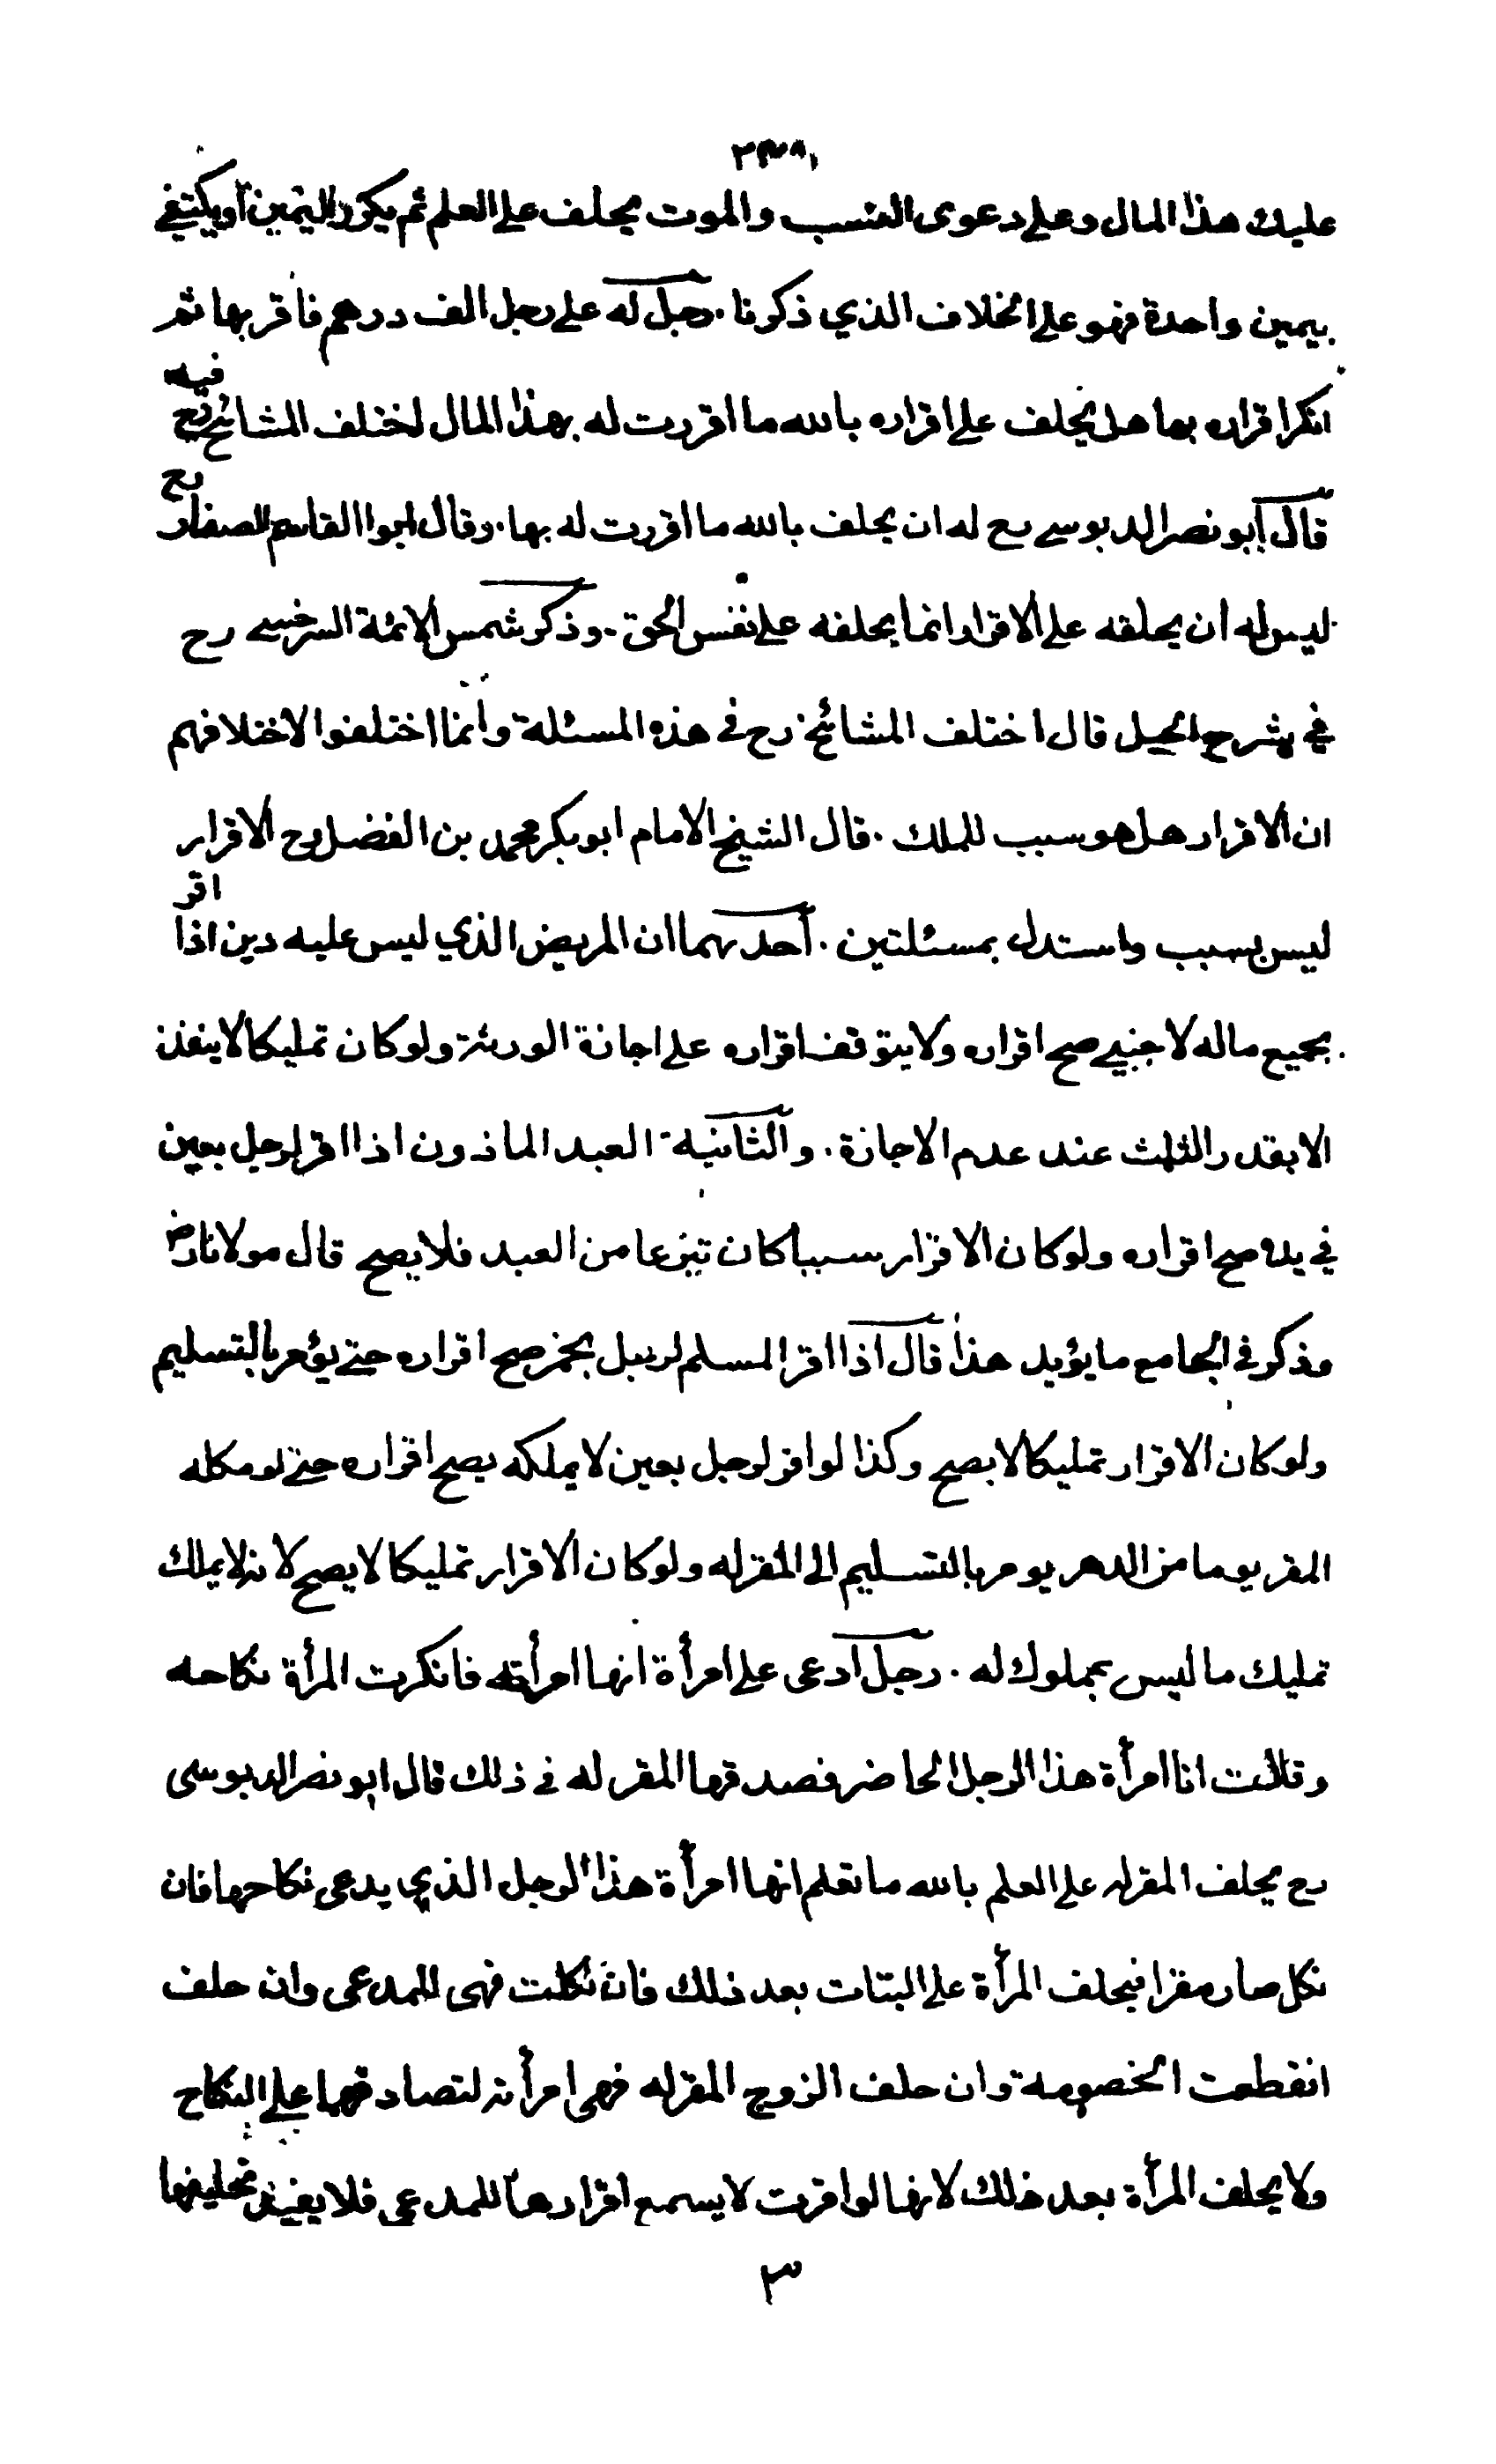 عليك هذا المال وعلى دعوى النسب والموت يحلف على العلم ثم يكرر اليمين او يكتفي
بيمين واحدة فهو على الخلاف الذي ذكرنا. رجل له على رجل الف درهم فاقر بها ثم
انكر اقراره بها هل يحلف على اقراره بالله ما اقررت له بهذا المال اختلف المشائخ رح فيه
قال ابو نصر الدبوسي رح له ان يحلف بالله ما اقررت له بها. وقال ابوا القاسم الصفار رح
ليس له ان يحلفه على الاقرار انما يحلفه على نفس الحق. وذكر شمس الائمة السرخسي رح
في شرح الحيل قال اختلف المشائخ رح في هذه المسئلة وانما اختلفوا لاختلافهم
ان الاقرار هل هو سبب للملك. قال الشيخ الامام ابو بكر محمد بن الفضل رح الاقرار
ليس بسبب واستدل بمسئلتين. أحدهما ان المريض الذي ليس عليه دين اذا اقر
بجميع ماله لاجنبي صح اقراره ولا يتوقف اقراره على اجازة الورثة ولو كان تمليكا لا ينفذ
الا بقدر الثلث عند عدم الاجازة. والثانية العبد الماذون اذا اقر لرجل بعين
في يده صح اقراره ولو كان الاقرار سببا كان تبرعا من العبد فلا يصح قال مولانا رض
وذكر في الجامع ما يؤيد هذا قال اذا اقر المسلم لرجل بخمر صح اقراره حتى يؤمر بالتسليم
ولو كان الاقرار تمليكا لا يصح وكذا لو اقر لرجل بعين لا يملكه يصح اقراره حتى لو ملكه
المقر يوما من الدهر يومر بالتسليم الى المقر له ولو كان الاقرار تمليكا لا يصح لانه لا يملك
تمليك ما ليس بمملوك له. رجل ادعى على امرأة انها امرأته فانكرت المرأة نكاحه
وقالت انا امرأة هذا الرجل الحاضر فصدقها المقر له في ذلك قال ابو نصر الدبوسى
رح يحلف المقر له على العلم بالله ما تعلم انها امرأة هذا الرجل الذي يدعى نكاحها فان
نكل صار مقرا فيحلف المرأة على البتات بعد ذلك فان نكلت فهى للمدعى وان حلف
انقطعت الخصومة وان حلف الزوج المقر له فهى امرأته لتصادقهما على النكاح
ولا يحلف المرأة بعد ذلك لانها لو اقرت لا يسمع اقرارها للمدعي فلا يفيد تحليفها
٣